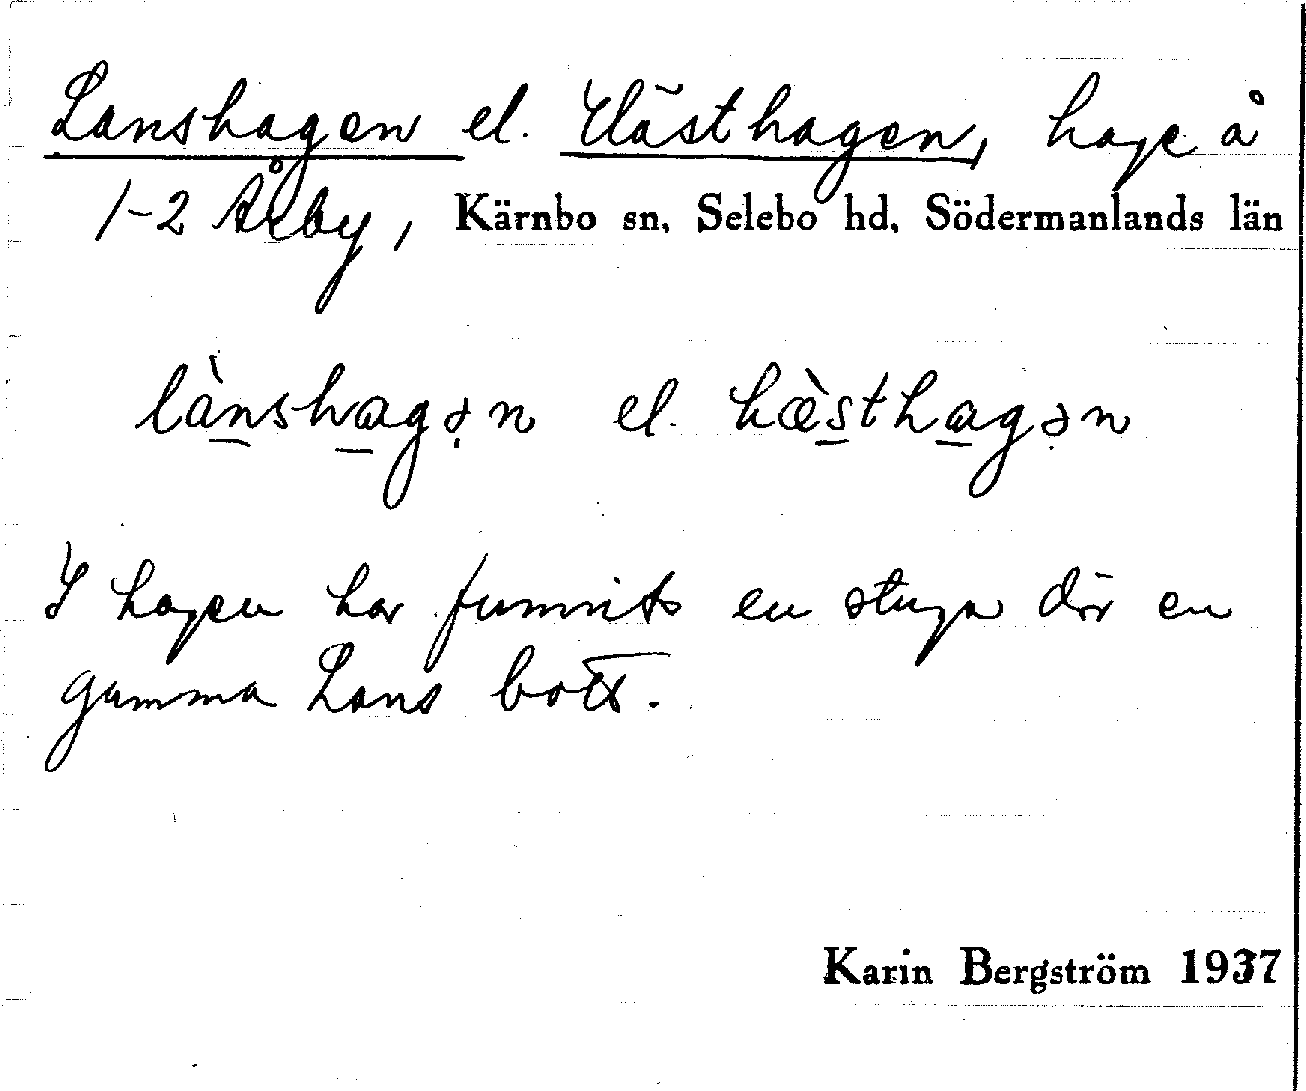 Lanshagen el. Hästhagen, hage å
1-2 Åleby, Kärnbo sn, Selebo hd, Södermanlands län
lànshagən el. hæ̀sthagən
I hagen har funnits en stuga där en
gamma Lans bott.
Karin Bergström 1937